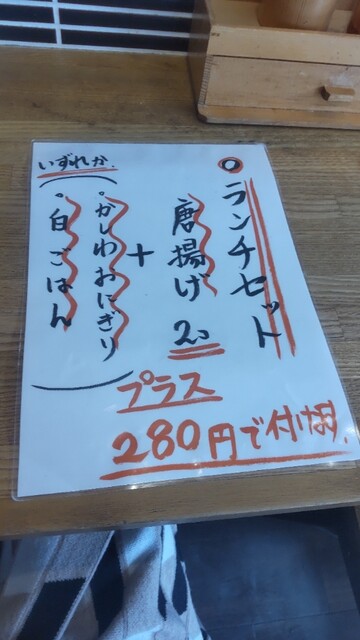 ◎ランチセット
唐揚げ 2コ
+
いずれか
・かしわおにぎり
・白ごはん
プラス
280円で付けます。